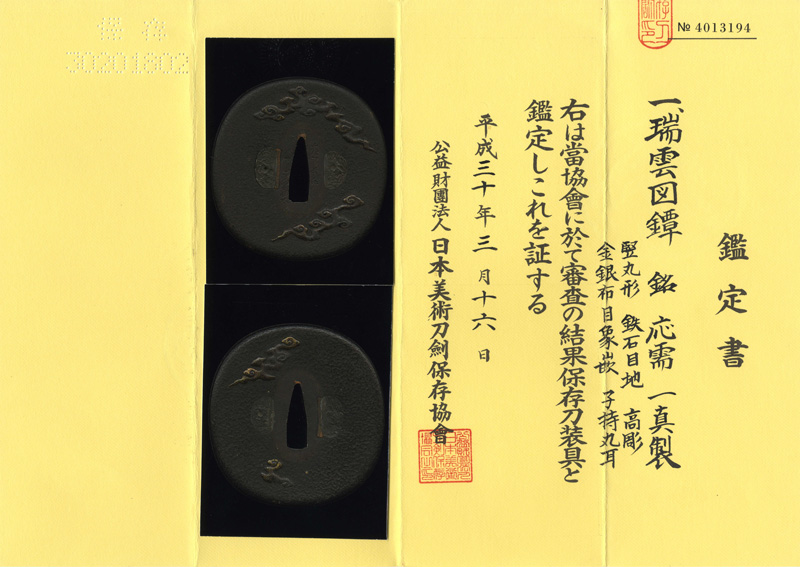 № 4013194
鑑定書
一、瑞雲図鐔 銘 応需 一真製
竪丸形 鉄石目地 高彫
金銀布目象嵌 子持丸耳
右は當協會に於て審査の結果保存刀装具と
鑑定しこれを証する
平成三十年三月十六日
公益財團法人 日本美術刀劍保存協會
保存
30201802